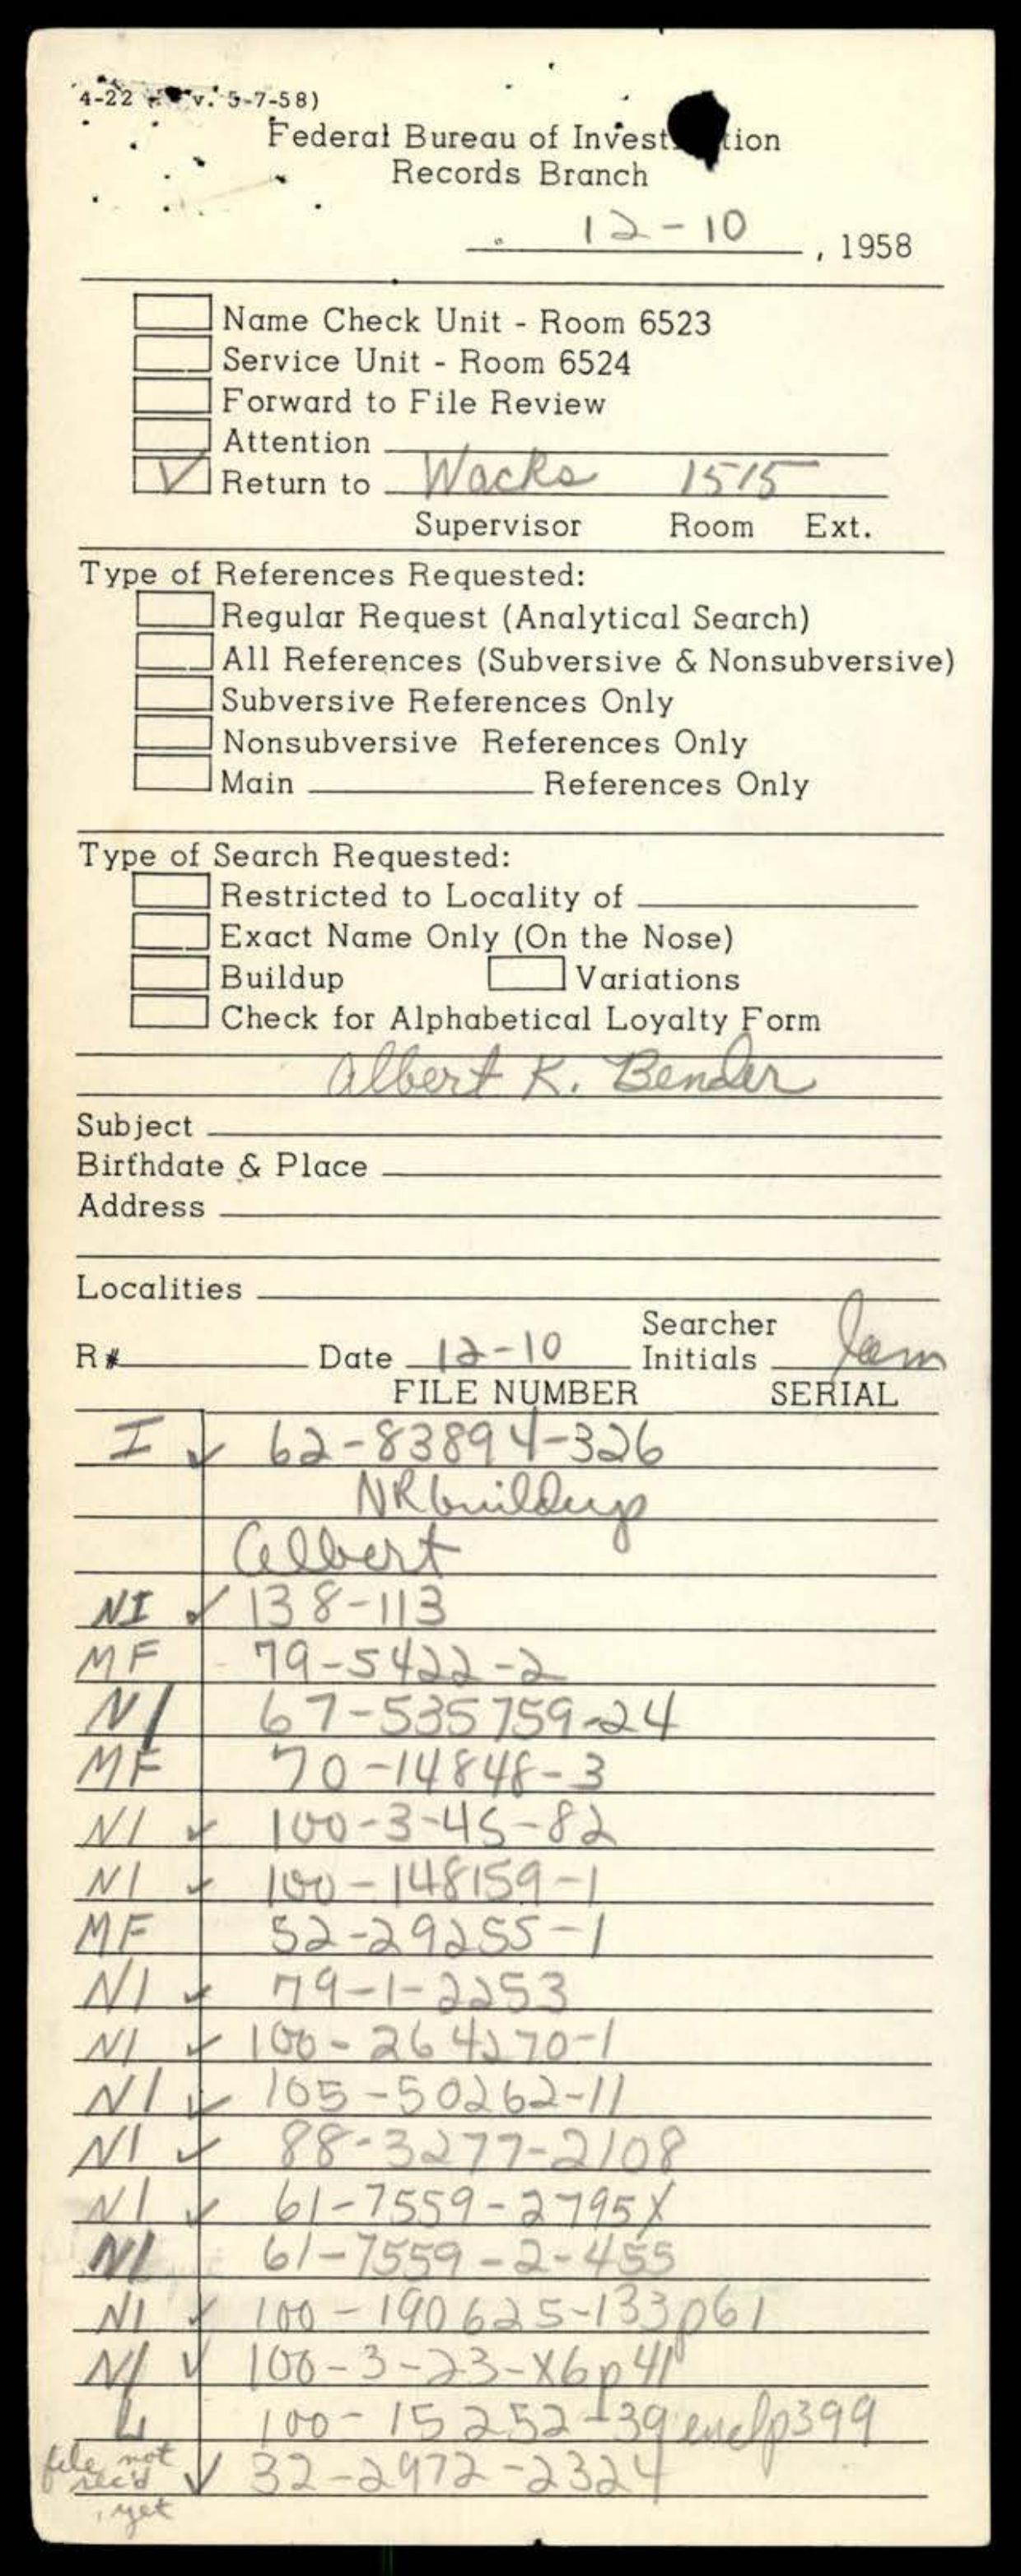 4-22 v. 5-7-58)
Federal Bureau of Invest tion
Records Branch
12-10, 1958
Name Check Unit - Room 6523
Service Unit - Room 6524
Forward to File Review
Attention
Return to Wacks 1515
Supervisor Room Ext.
Type of References Requested:
Regular Request (Analytical Search)
All References (Subversive & Nonsubversive)
Subversive References Only
Nonsubversive References Only
Main References Only
Type of Search Requested:
Restricted to Locality of
Exact Name Only (On the Nose)
Buildup Variations
Check for Alphabetical Loyalty Form
Albert K. Bender
Subject
Birthdate & Place
Address
Localities
Searcher
R# Date 12-10 Initials
FILE NUMBER SERIAL
I ✓ 62-83894-326
NR buildup
Albert
NI ✓ 138-113
MF 79-5422-2
NI 67-535759-24
MF 70-14848-3
NI ✓ 100-3-45-82
NI ✓ 100-148159-1
MF 52-29255-1
NI ✓ 79-1-2253
NI ✓ 100-264270-1
NI ✓ 105-50262-11
NI ✓ 88-3277-2108
NI ✓ 61-7559-2795X
NI 61-7559-2-455
NI ✓ 100-190625-133p61
NI ✓ 100-3-23-X6p41
100-15252-39 enclp399
file not rec'd yet ✓ 32-2972-2324